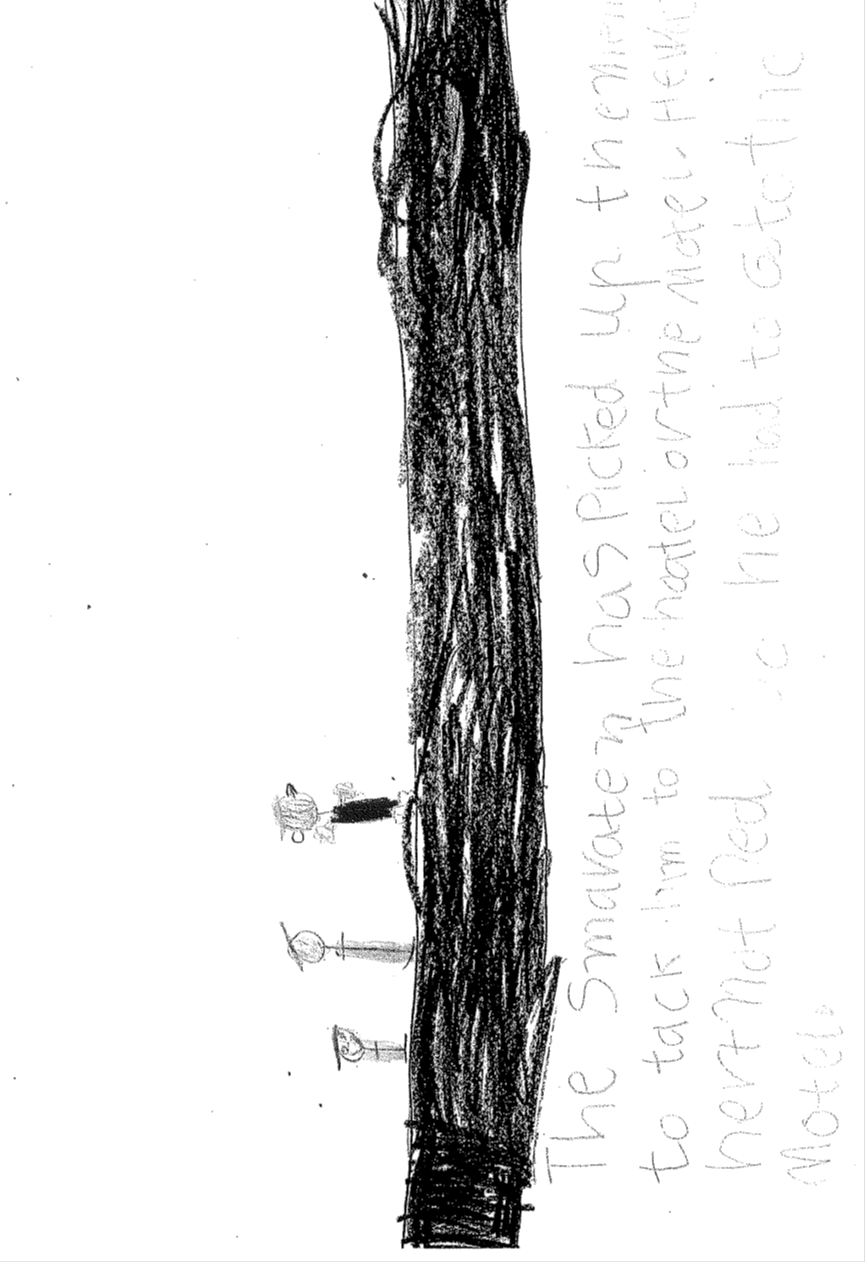 The Smavaten has Picked Up the
to tack him to the hoatel or the Motel. He
hert Not Ped he had to Go to the
Motel.